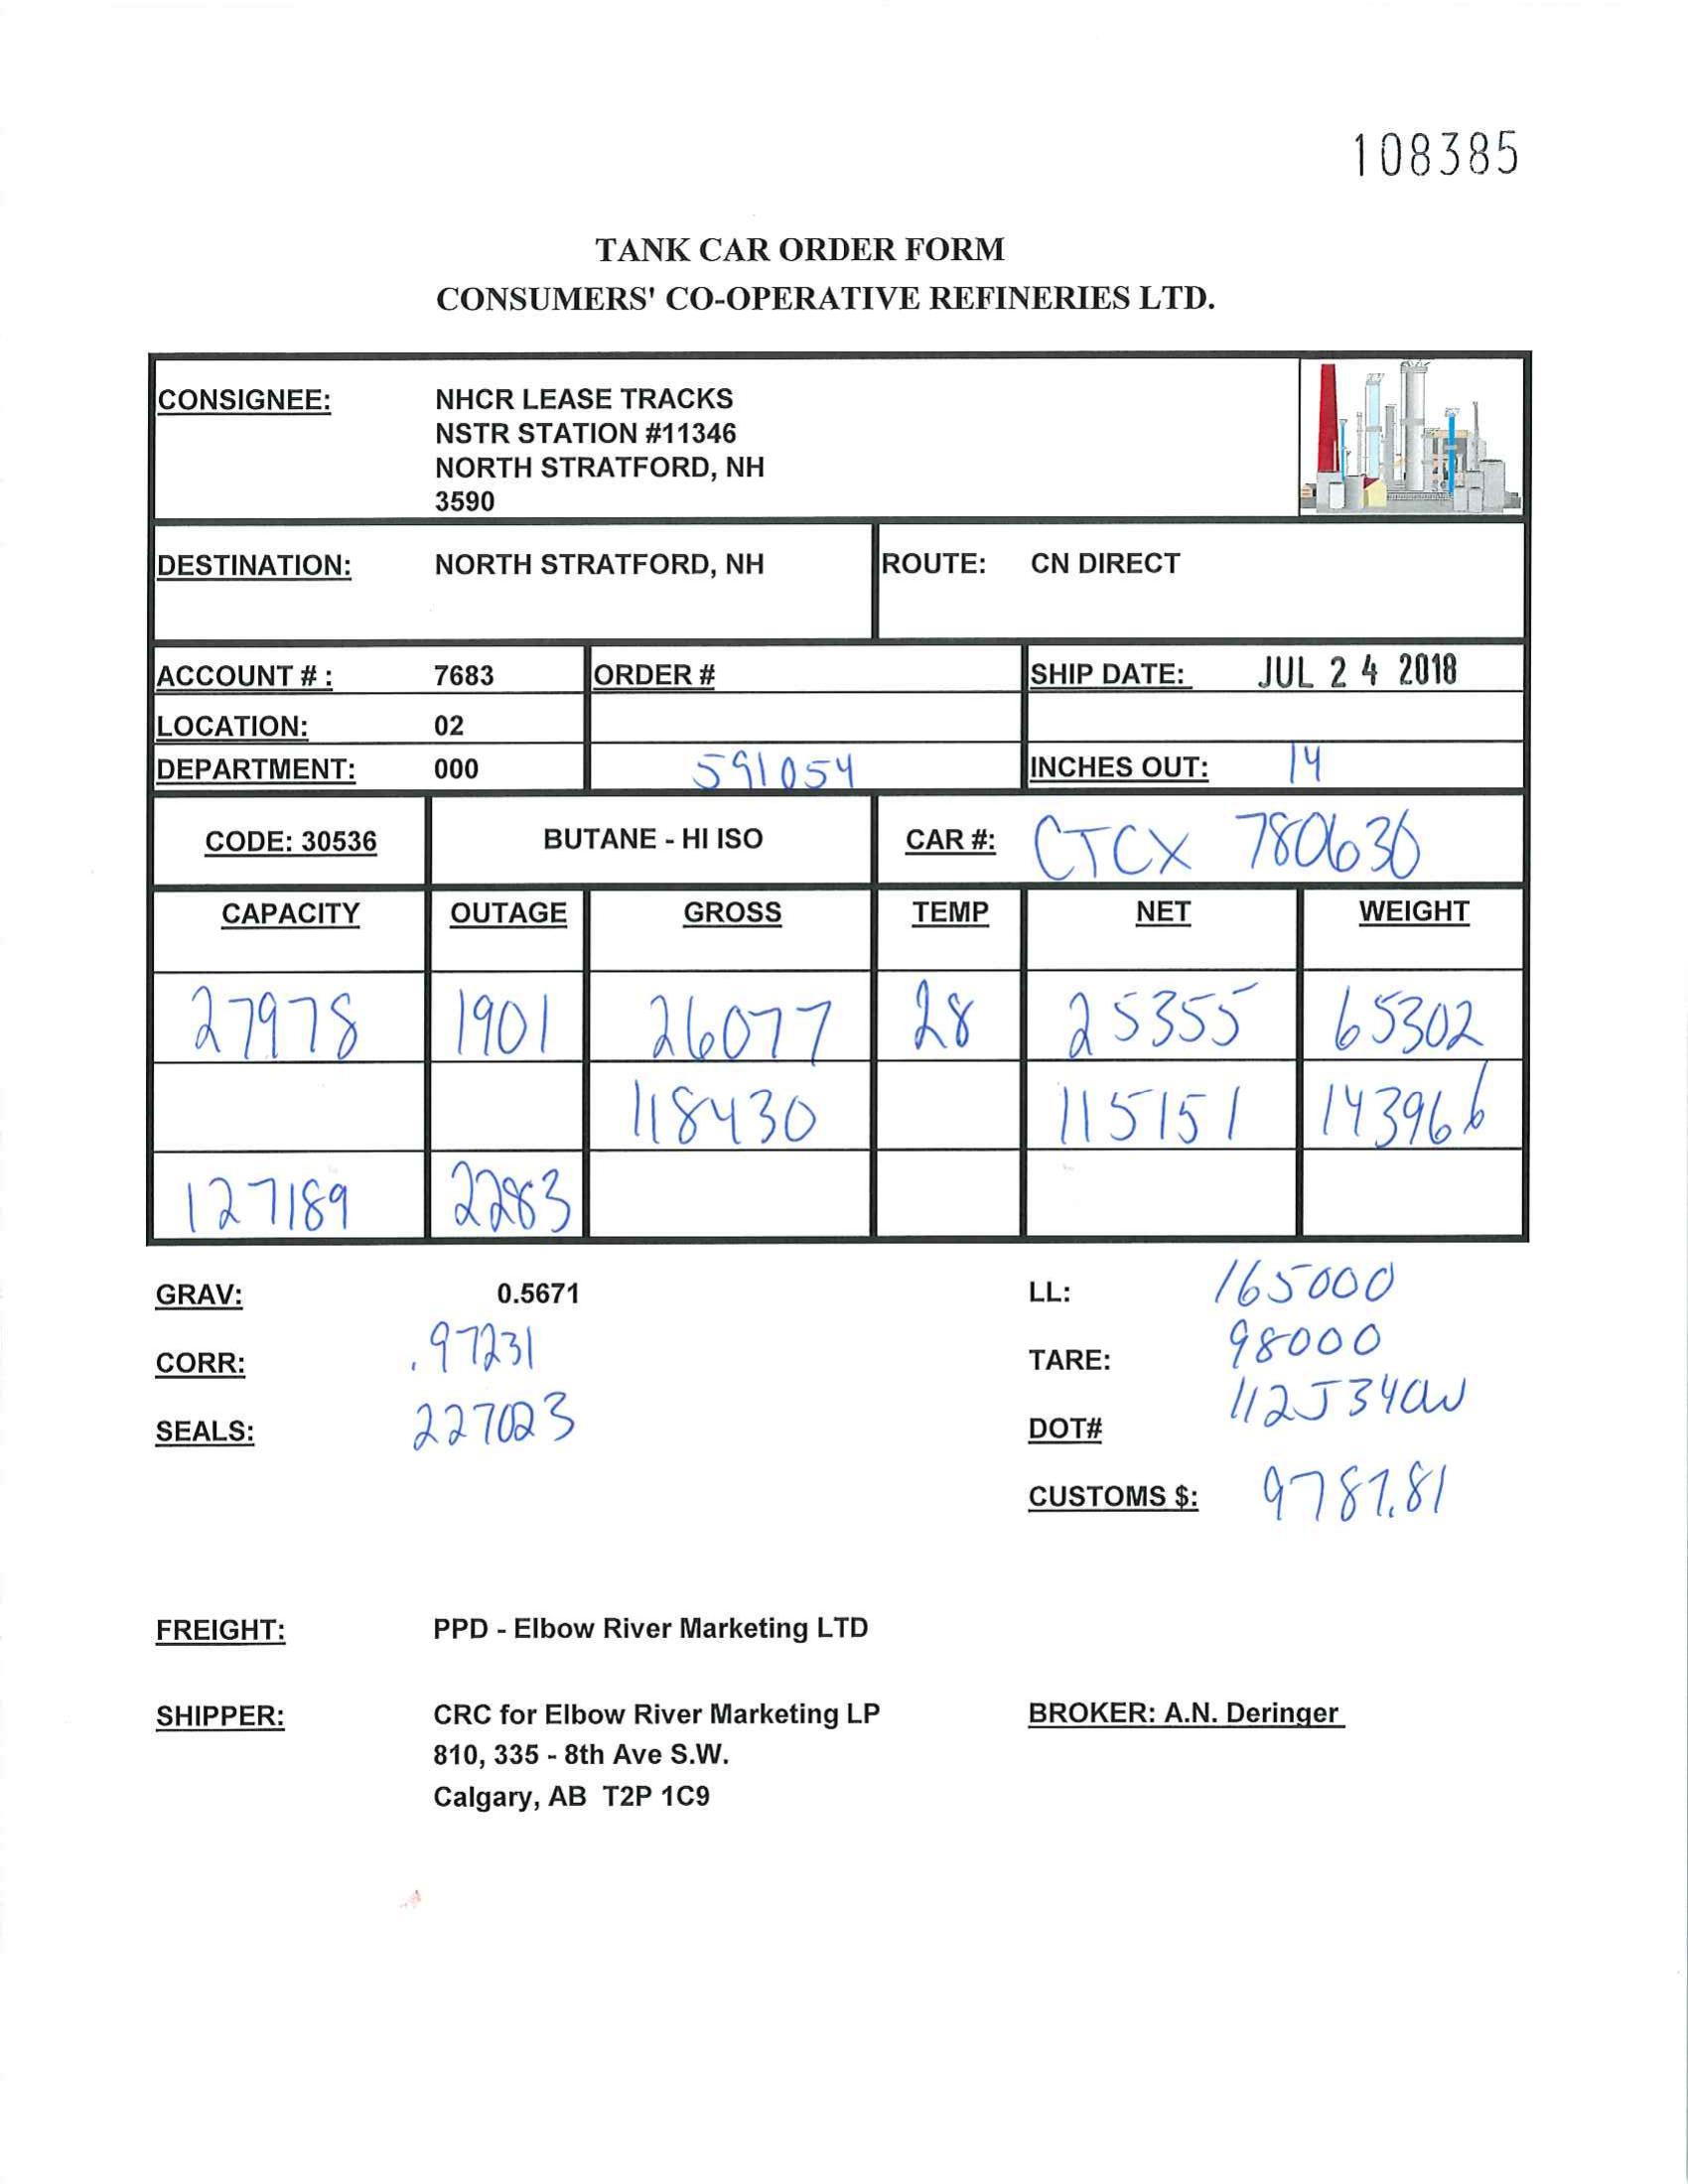 108385
TANK CAR ORDER FORM
CONSUMERS' CO-OPERATIVE REFINERIES LTD.
CONSIGNEE: NHCR LEASE TRACKS
NSTR STATION #11346
NORTH STRATFORD, NH
3590
DESTINATION: NORTH STRATFORD, NH ROUTE: CN DIRECT
ACCOUNT # : 7683 ORDER # SHIP DATE: JUL 24 2018
LOCATION: 02
DEPARTMENT: 000 591054 INCHES OUT: 14
CODE: 30536 BUTANE - HI ISO CAR #: CTCX 780636
CAPACITY OUTAGE GROSS TEMP NET WEIGHT
27978 1901 26077 28 25355 65302
118430 115151 143966
127189 2283
GRAV: 0.5671 LL: 165000
CORR: .97231 TARE: 98000
SEALS: 227023 DOT# 112J340W
CUSTOMS $: 9787.81
FREIGHT: PPD - Elbow River Marketing LTD
SHIPPER: CRC for Elbow River Marketing LP BROKER: A.N. Deringer
810, 335 - 8th Ave S.W.
Calgary, AB T2P 1C9